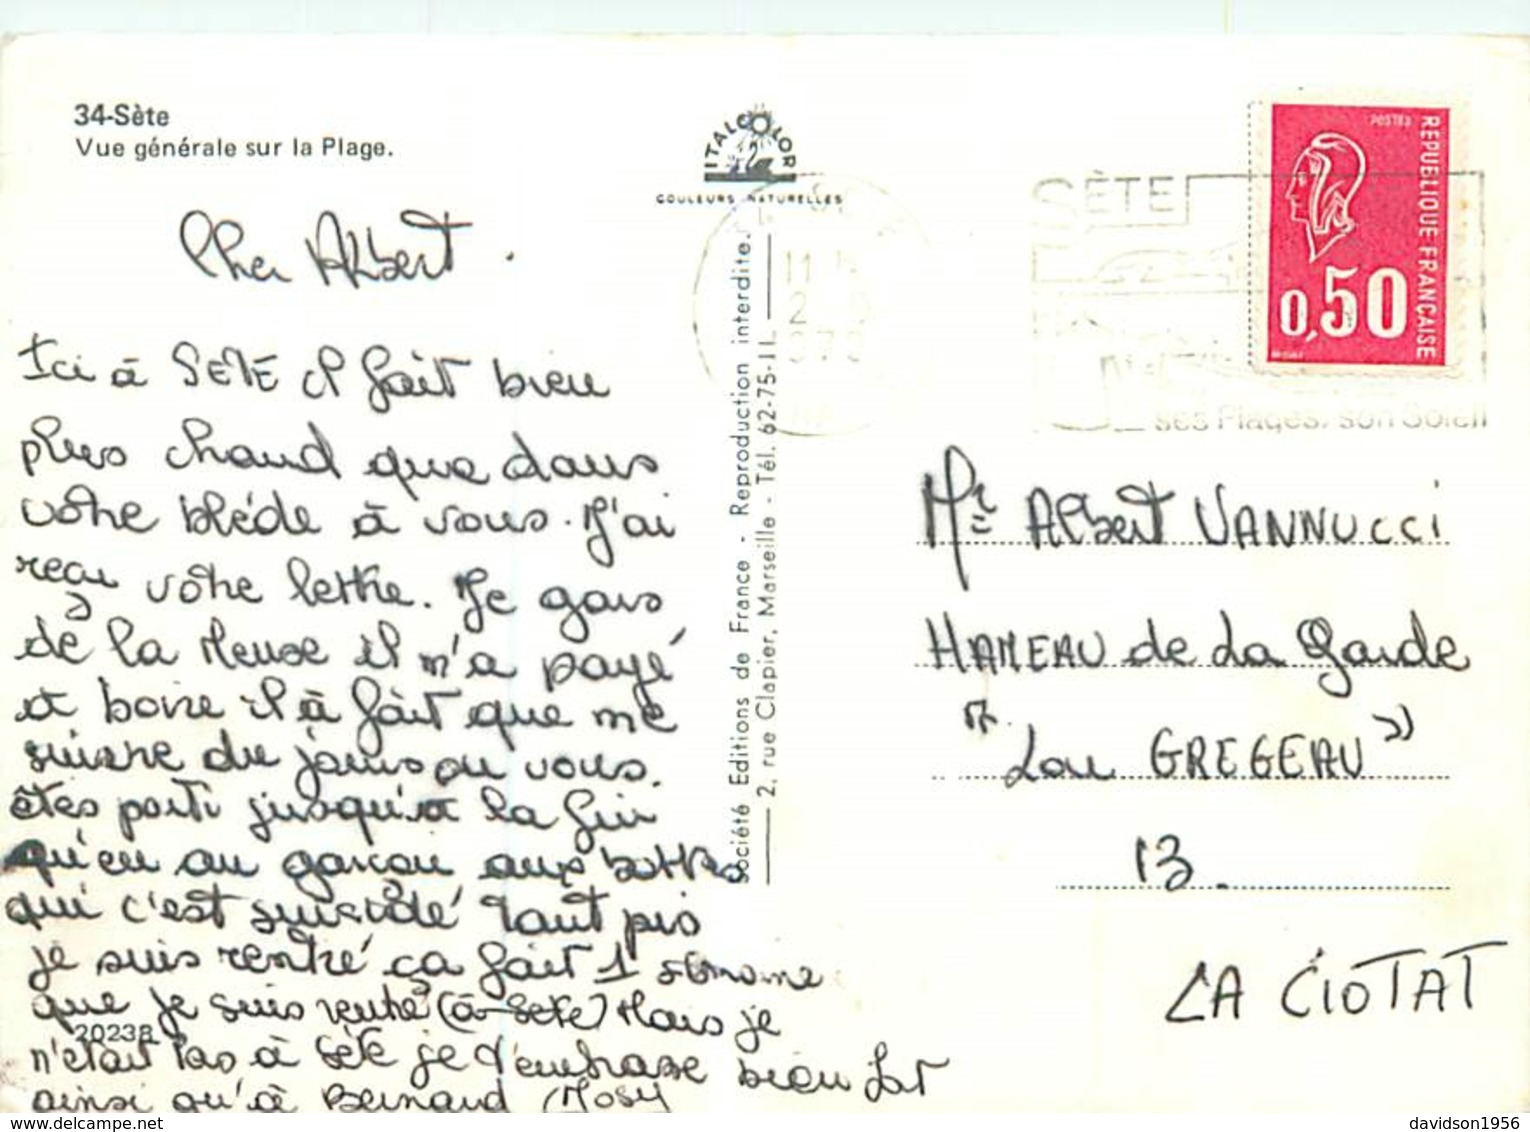 34-Sète
Vue générale sur la Plage.
ITALCOLOR
COULEURS NATURELLES
Cher Albert.
Ici à SETE il fait bien
plus chaud que dans
vôtre bléde à vous. J'ai
reçu vôtre lettre. Je gars
de la Meuse il m'a payé
et boire il à fait que me
suivre du jours ou vous.
êtes parti jusqu'à la fin
qu'en au garçon aux bottes
qui c'est suicidé tant pis
je suis rentré ça fait 1
que je suis rentré (à Sete) Mais je
n'était pas à Sète je t'embrasse bien fort
ainsi qu'à Bernard (Josy
20238
Société Editions de France - Reproduction interdite.
2, rue Clapier, Marseille - Tél. 62-75-11
SÈTE
ses Plages, son Soleil
POSTES
REPUBLIQUE FRANÇAISE
0,50
Mr Albert VANNUCCI
HAMEAU de La Garde
"Lou GREGEAU"
13.
LA CIOTAT
davidson1956